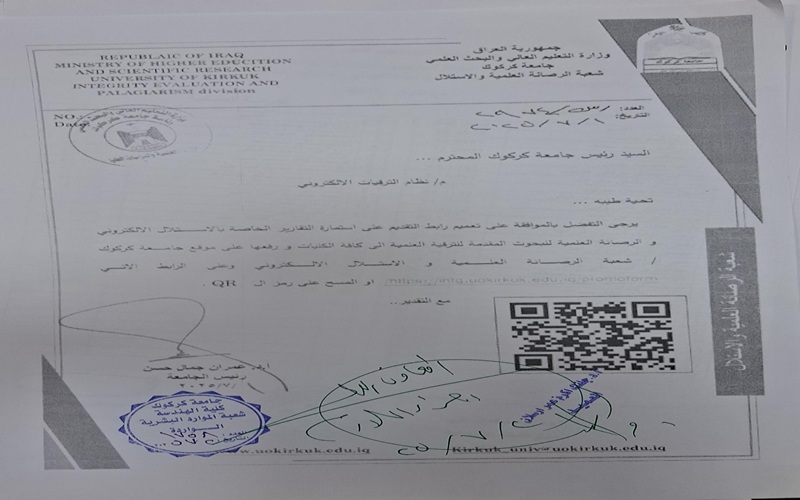 جمهورية العراق
وزارة التعليم العالي والبحث العلمي
جامعة كركوك
شعبة الرصانة العلمية والاستلال
REPUBLAIC OF IRAQ
MINISTRY OF HIGHER EDUCTION
AND SCIENTIFIC RESEARCH
UNIVERSITY OF KIRKUK
INTEGRITY EVALUATION AND
PALAGIARISM division
العدد:
التاريخ: ٢٠٢٥/٧/١
NO.
Date:
السيد رئيس جامعة كركوك المحترم ...
م/ نظام الترقيات الالكتروني
تحية طيبه ...
يرجى التفضل بالموافقة على تعميم رابط التقديم على استمارة التقارير الخاصة بالاستلال الالكتروني
و الرصانة العلمية للبحوث المقدمة للترقية العلمية الى كافة الكليات و رفعها على موقع جامعة كركوك
/ شعبة الرصانة العلمية و الاستلال الالكتروني وعلى الرابط الاتي
https://intg.uokirkuk.edu.iq/promoform او المسح على رمز ال QR .
مع التقدير..
أ.د. عمران جمال حسن
رئيس الجامعة
٢٠٢٥/٧/١
جامعة كركوك
كلية الهندسة
شعبة الموارد البشرية
الواردة
شعبة الرصانة العلمية والاستلال
www.uokirkuk.edu.iq
Kirkuk_univ@uokirkuk.edu.iq